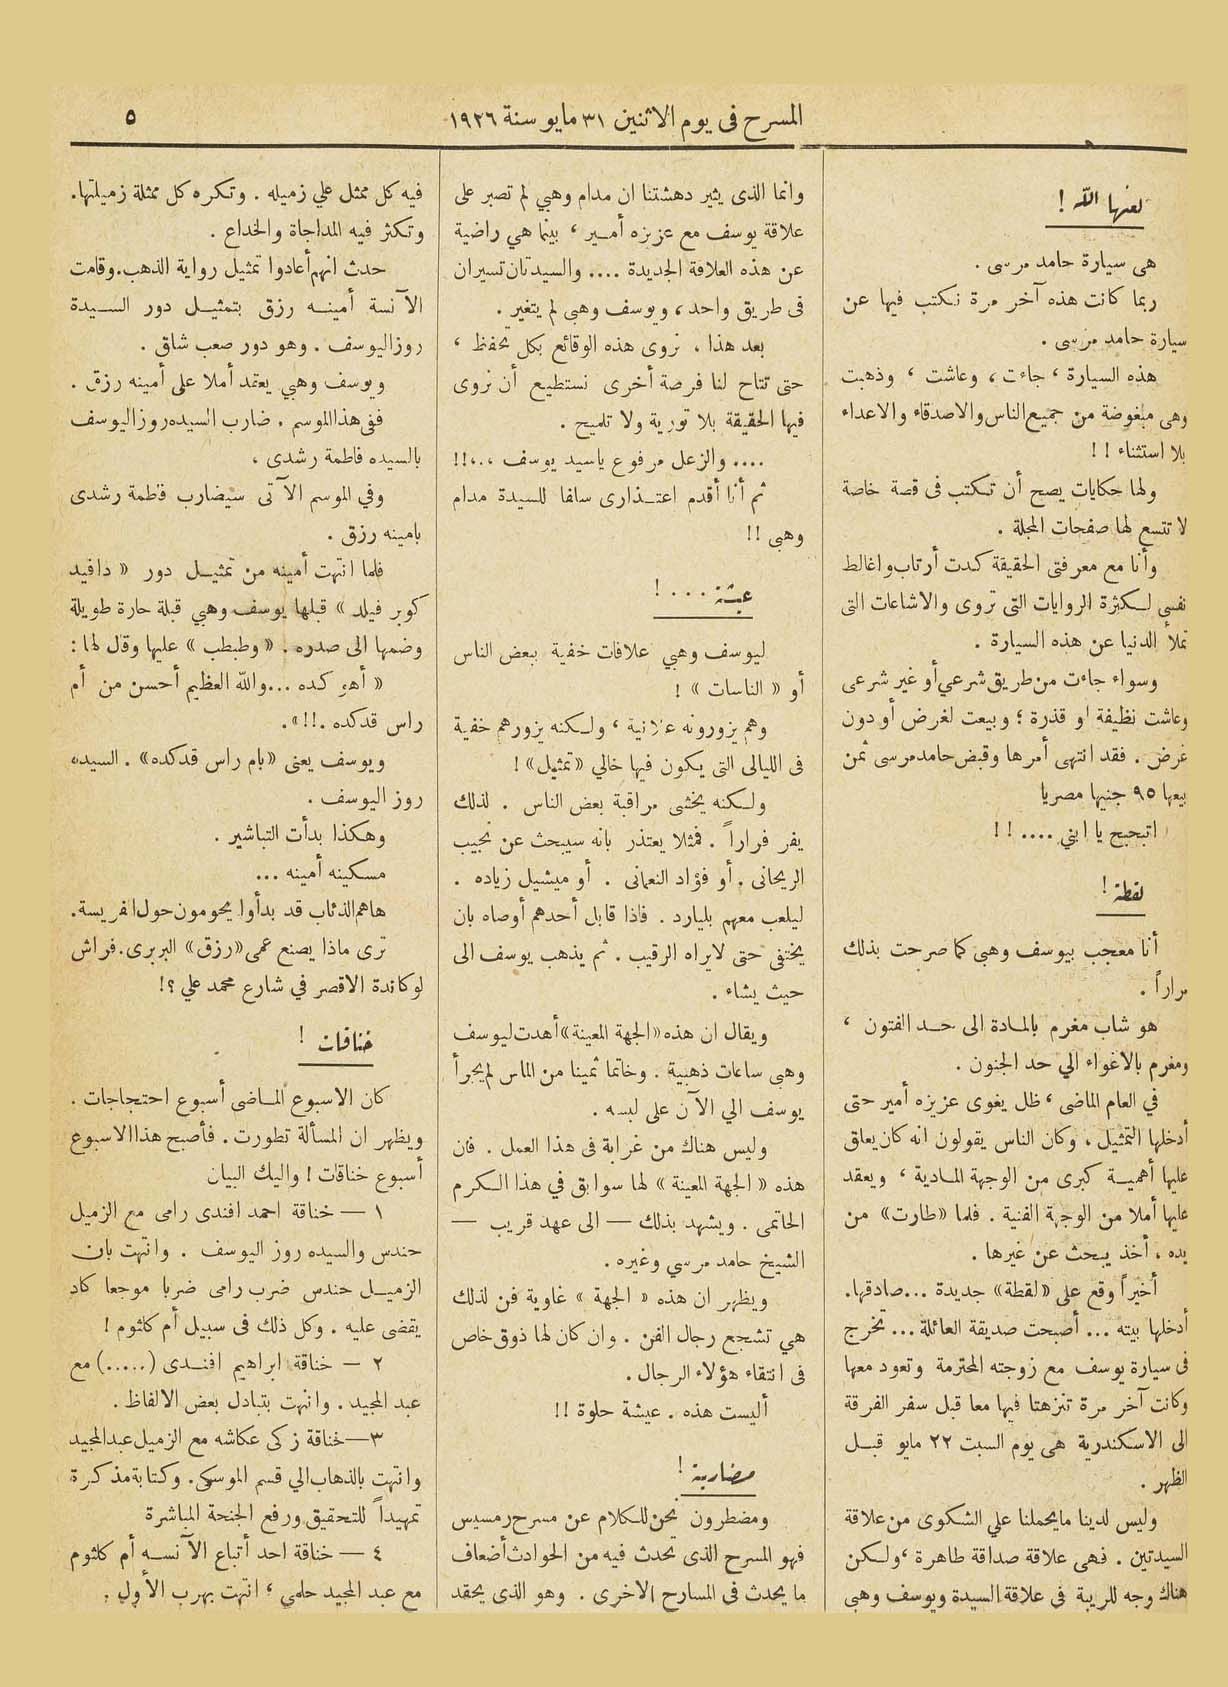 المسرح فى يوم الاثنين ٣١ مايو سنة ١٩٢٦
٥
لعنها الله !
هى سيارة حامد مرسى .
ربما كانت هذه آخر مرة نكتب فيها عن
سيارة حامد مرسى .
هذه السيارة ، جاءت ، وعاشت ، وذهبت
وهى مبغوضة من جميع الناس والاصدقاء والاعداء
بلا استثناء ! !
ولها حكايات يصح أن تكتب فى قصة خاصة
لا تتسع لها صفحات المجلة .
وأنا مع معرفتى الحقيقة كدت أرتاب واغالط
نفسى لكثرة الروايات التى تروى والاشاعات التى
تملأ الدنيا عن هذه السيارة .
وسواء جاءت من طريق شرعي أو غير شرعى
وعاشت نظيفة او قذرة ؛ وبيعت لغرض أو دون
غرض . فقد انتهى أمرها وقبض حامد مرسى ثمن
بيعها ٩٥ جنيها مصريا
اتبحبح يا ابني .... ! !
لقطة !
أنا معجب بيوسف وهبى كما صرحت بذلك
مراراً .
هو شاب مغرم بالمادة الى حد الفتون ،
ومغرم بالاغواء الي حد الجنون .
في العام الماضى ، ظل يغوى عزيزه أمير حتى
أدخلها التمثيل ، وكان الناس يقولون انه كان يعلق
عليها أهمية كبرى من الوجهة المادية ، ويعقد
عليها أملا من الوجهة الفنية . فلما «طارت» من
يده ، أخذ يبحث عن غيرها .
أخيراً وقع على «لقطة» جديدة ... صادقها.
أدخلها بيته ... أصبحت صديقة العائلة ... تخرج
فى سيارة يوسف مع زوجته المحترمة وتعود معها
وكانت آخر مرة تنزهتا فيها معا قبل سفر الفرقة
الى الاسكندرية هى يوم السبت ٢٢ مايو قبل
الظهر .
وليس لدينا ما يحملنا علي الشكوى من علاقة
السيدتين . فهى علاقة صداقة طاهرة ، ولكن
هناك وجه للريبة فى علاقة السيدة ويوسف وهبى
وانما الذى يثير دهشتنا ان مدام وهبي لم تصبر على
علاقة يوسف مع عزيزه أمير ، بينما هي راضية
عن هذه العلاقة الجديدة .... والسيدتان تسيران
فى طريق واحد ، ويوسف وهبى لم يتغير .
بعد هذا ، نروى هذه الوقائع بكل تحفظ ،
حتى تتاح لنا فرصة أخرى نستطيع أن نروى
فيها الحقيقة بلا تورية ولا تلميح .
.... والزعل مرفوع ياسيد يوسف ....!!
ثم أنا أقدم اعتذارى سلفا للسيدة مدام
وهبى !!
عيشة ... !
ليوسف وهبي علاقات خفية ببعض الناس
أو « الناسات » !
وهم يزورونه علانية ، ولكنه يزورهم خفية
فى الليالى التى يكون فيها خالي «تمثيل» !
ولكنه يخشى مراقبة بعض الناس . لذلك
يفر فراراً . فمثلا يعتذر بانه سيبحث عن نجيب
الريحانى . أو فؤاد النعمانى . أو ميشيل زياده .
ليلعب معهم بليارد . فاذا قابل أحدهم أوصاه بان
يختفى حتى لا يراه الرقيب . ثم يذهب يوسف الى
حيث يشاء .
ويقال ان هذه «الجهة المعينة» أهدت ليوسف
وهبى ساعات ذهبية . وخاتما ثمينا من الماس لم يجرأ
يوسف الي الآن على لبسه .
وليس هناك من غرابة فى هذا العمل . فان
هذه « الجهة المعينة » لها سوابق في هذا الكرم
الحاتمى . ويشهد بذلك — الى عهد قريب —
الشيخ حامد مرسي وغيره .
ويظهر ان هذه « الجهة » غاوية فن لذلك
هي تشجع رجال الفن . وان كان لها ذوق خاص
فى انتقاء هؤلاء الرجال .
أليست هذه . عيشة حلوة !!
مضاربة !
ومضطرون نحن للكلام عن مسرح رمسيس
فهو المسرح الذى تحدث فيه من الحوادث أضعاف
ما يحدث فى المسارح الاخرى . وهو الذى يحقد
فيه كل ممثل علي زميله . وتكره كل ممثلة زميلتها.
وتكثر فيه المداجاة والخداع .
حدث انهم أعادوا تمثيل رواية الذهب . وقامت
الآنسة أمينه رزق بتمثيل دور السيدة
روز اليوسف . وهو دور صعب شاق .
ويوسف وهبي يعقد أملا على أمينه رزق .
ففى هذا الموسم . ضارب السيده روز اليوسف
بالسيده فاطمة رشدى ،
وفي الموسم الآتى سيضارب فاطمة رشدى
بامينه رزق .
فلما انتهت أمينه من تمثيل دور « دافيد
كوبر فيلد » قبلها يوسف وهبي قبلة حارة طويلة
وضمها الى صدره . « وطبطب » عليها وقال لها :
« أهو كده ... والله العظيم أحسن من أم
راس قد كده .!!» .
ويوسف يعنى «بام راس قد كده» . السيده
روز اليوسف .
وهكذا بدأت التباشير .
مسكينه أمينه ...
هاهم الذئاب قد بدأوا يحومون حول الفريسة.
ترى ماذا يصنع عمى «رزق» البربرى . فراش
لوكاندة الاقصر في شارع محمد علي ؟!
خناقات !
كان الاسبوع الماضى أسبوع احتجاجات .
ويظهر ان المسألة تطورت . فأصبح هذا الاسبوع
أسبوع خناقات ! واليك البيان
١ — خناقة احمد افندى رامى مع الزميل
حندس والسيده روز اليوسف . وانتهت بان
الزميل حندس ضرب رامى ضربا موجعا كاد
يقضى عليه . وكل ذلك فى سبيل أم كلثوم !
٢ — خناقة ابراهيم افندى (.....) مع
عبد المجيد . وانتهت بتبادل بعض الالفاظ .
٣ — خناقة زكى عكاشه مع الزميل عبد المجيد
وانتهت بالذهاب الي قسم الموسكى . وكتابة مذكرة
تمهيداً للتحقيق ورفع الجنحة المباشرة
٤ — خناقة احد أتباع الآنسه أم كلثوم
مع عبد المجيد حلمي ؛ انتهت بهرب الأول .